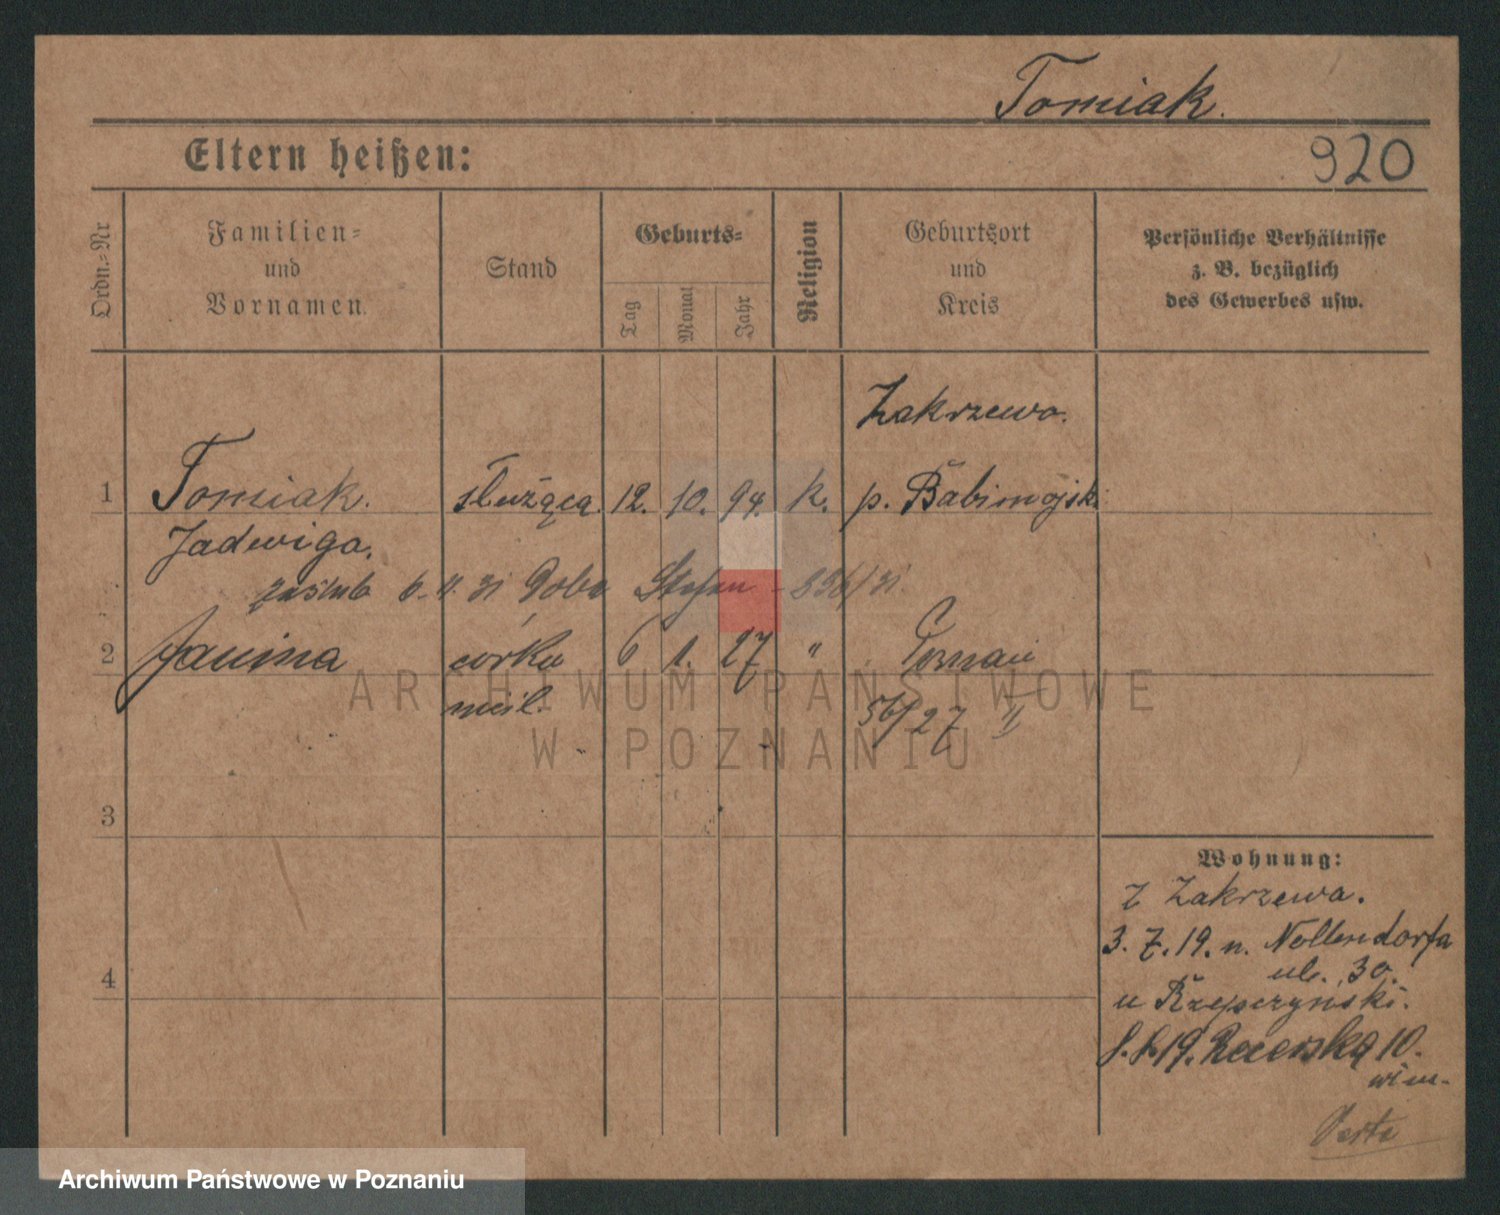 Tomiak.
Eltern heißen:
920
Ordn.=Nr
Familien=
und
Vornamen.
Stand
Geburts=
Tag
Monat
Jahr
Religion
Geburtsort
und
Kreis
Persönliche Verhältnisse
z. B. bezüglich
des Gewerbes usw.
Zakrzewo.
1 Tomiak. służąca. 12. 10. 94. k. p. Babimojski
Jadwiga.
zaślub 6. 11. 31 Stefan 896/31
2 Janina córka 6 1. 27 " Poznań
nieśl. 56/27 II
ARCHIWUM PAŃSTWOWE
W POZNANIU
3
4
Wohnung:
z Zakrzewa.
3. 7. 19. n. Nollendorfa
ul. 30.
u Rzepczyński.
19. 10.
Archiwum Państwowe w Poznaniu